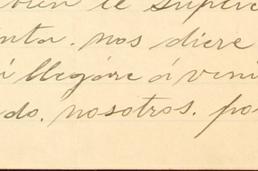 bien le super
nta. nos diere
á llegáre á veni
do. nosotros. po